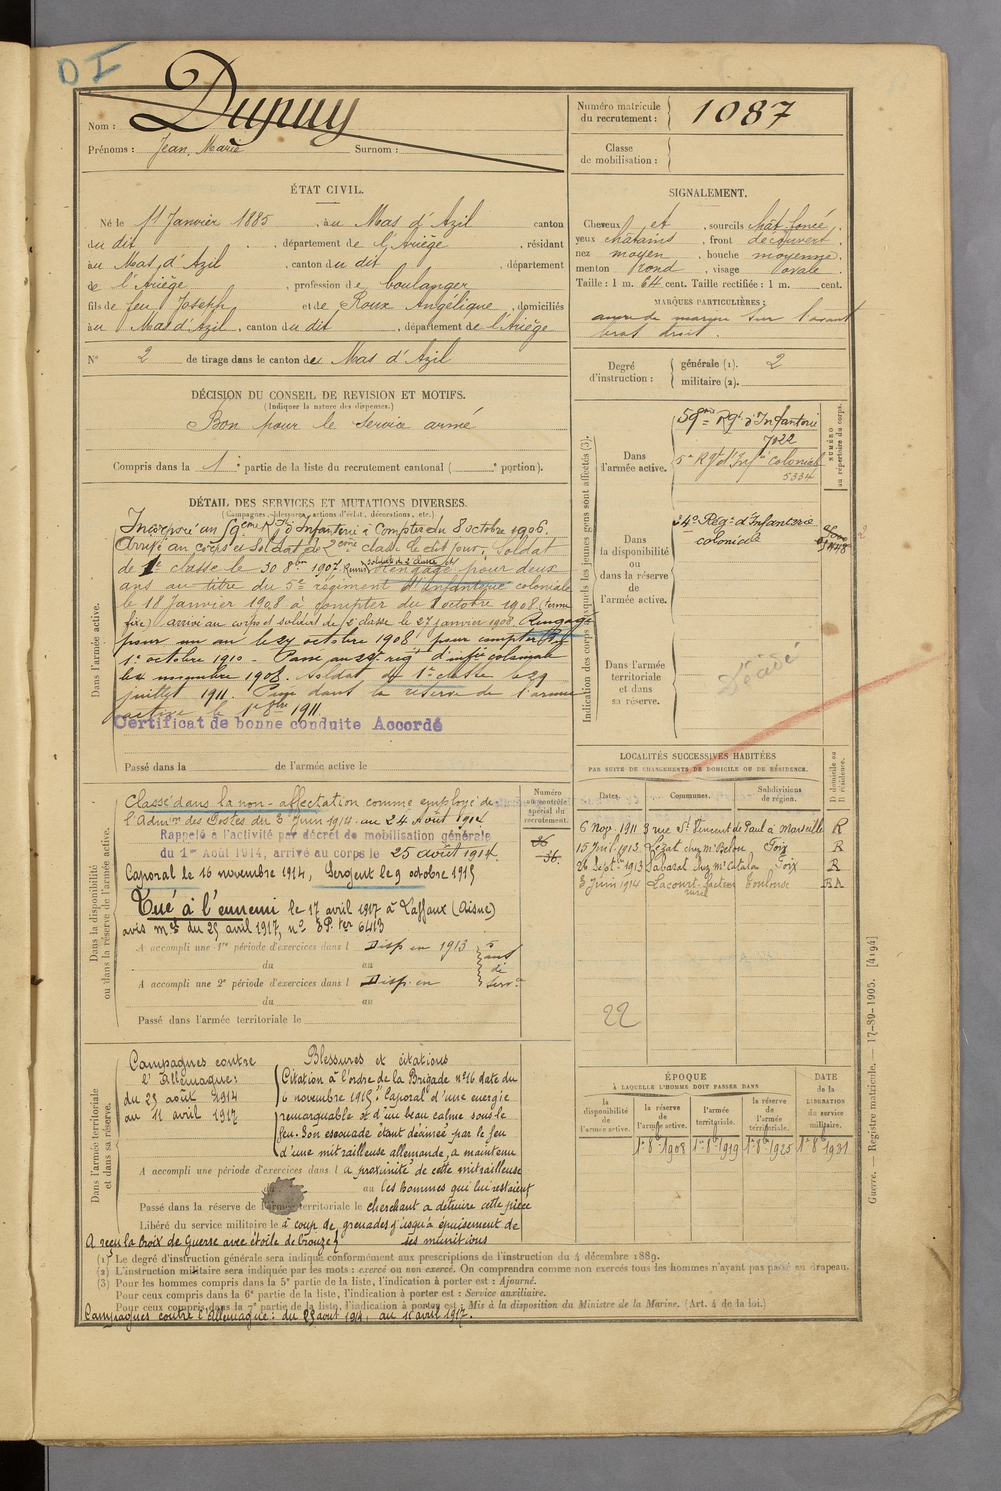 DI
Nom : Dupuy
Prénoms : Jean Marie Surnom :
Numéro matricule du recrutement : 1087
Classe de mobilisation :
ÉTAT CIVIL.
Né le 11 Janvier 1885, au Mas d'Azil canton
du dit, département de l'Ariège, résidant
au Mas d'Azil, canton du dit, département
de l'Ariège, profession de boulanger
fils de feu Joseph et de Roux Angélique, domiciliés
au Mas d'Azil, canton du dit, département de l'Ariège
N° 2 de tirage dans le canton du Mas d'Azil
SIGNALEMENT.
Cheveux et, sourcils chât foncé.
yeux châtains, front découvert.
nez moyen, bouche moyenne,
menton rond, visage ovale.
Taille : 1 m. 64 cent. Taille rectifiée : 1 m. cent.
MARQUES PARTICULIÈRES :
ancre de marine sur l'avant
bras droit.
Degré d'instruction : générale (1). 2
militaire (2).
DÉCISION DU CONSEIL DE REVISION ET MOTIFS.
(Indiquer la nature des dispenses.)
Bon pour le service armé
Compris dans la 1e partie de la liste du recrutement cantonal ( e portion).
DÉTAIL DES SERVICES ET MUTATIONS DIVERSES.
(Campagnes, blessures, actions d'éclat, décorations, etc.)
Dans l'armée active.
Incorporé au 59ème Rgt d'Infanterie à Compter du 8 octobre 1906.
Arrivé au corps et Soldat de 2ème classe le dit jour, Soldat
de 1e classe le 30 8bre 1907. Remis soldat de 2 classe Rengagé pour deux
ans au titre du 5e régiment d'Infanterie coloniale
le 18 Janvier 1908 à compter du 1 octobre 1908 (terme
fixe) arrivé au corps et soldat de 2e classe le 27 janvier 1908 Rengagé
pour un an le 27 octobre 1908 pour compter du
1er octobre 1910 - Passé au 22e rég. d'infie coloniale
le 4 novembre 1908. Soldat de 1e classe le 29
juillet 1911. Passé dans la réserve de l'armée
active le 1er 8bre 1911.
Certificat de bonne conduite Accordé
Passé dans la de l'armée active le
Indication des corps auxquels les jeunes gens sont affectés (3).
NUMÉRO au répertoire du corps.
Dans l'armée active.
59eme Rgt d'Infanterie
7022
5e Rgt d'Infie coloniale
5334
Dans la disponibilité ou dans la réserve de l'armée active.
24e Rég. d'Infanterie
coloniale
Dans l'armée territoriale et dans sa réserve.
Décédé
LOCALITÉS SUCCESSIVES HABITÉES
PAR SUITE DE CHANGEMENTS DE DOMICILE OU DE RÉSIDENCE.
Dates. Communes. Subdivisions de région. D domicile ou R résidence.
6 Nov. 1911 3 rue St Vincent de Paul à Marseille R
15 Juil. 1913. Lézat chez Mr Belou Foix R
26 Sept. 1913 Sabarat chez Mr Catala Foix R
3 Juin 1914 Lacourt-facteur rural Toulouse RA
22
Dans la disponibilité ou dans la réserve de l'armée active.
Numéro au contrôle spécial du recrutement.
36
36
Classé dans la non-affectation comme employé de
l'Admon des Postes du 3 Juin 1914 au 24 Août 1914
Rappelé à l'activité par décret de mobilisation générale
du 1er Août 1914, arrivé au corps le 25 août 1914.
Caporal le 16 novembre 1914, Sergent le 9 octobre 1915
Tué à l'ennemi le 17 avril 1917 à Laffaux (Aisne)
avis mel du 25 avril 1917, no SP. ter 6413
A accompli une 1re période d'exercices dans l Disp en 1913
du au
A accompli une 2e période d'exercices dans l Disp. en
5 ans de servce
du au
Passé dans l'armée territoriale le
Dans l'armée territoriale et dans sa réserve.
Campagnes contre
l'Allemagne :
du 25 août 1914
au 11 avril 1917
Blessures et citations
Citation à l'ordre de la Brigade no 16 date du
6 novembre 1915 : "Caporal d'une énergie
remarquable et d'un beau calme sous le
feu. Son escouade étant décimée par le feu
d'une mitrailleuse allemande, a maintenu
A accompli une période d'exercices dans l à proximité de cette mitrailleuse
au les hommes qui lui restaient
Passé dans la réserve de l'armée territoriale le cherchant à détruire cette pièce
Libéré du service militaire le à coup de grenades jusqu'à épuisement de
A reçu la Croix de Guerre avec étoile de bronze ses munitions
ÉPOQUE
À LAQUELLE L'HOMME DOIT PASSER DANS
DATE de la LIBÉRATION du service militaire.
la disponibilité de l'armée active. la réserve de l'armée active. l'armée territoriale. la réserve de l'armée territoriale.
1er 8b 1908 1er 8b 1919 1er 8b 1925 1er 8b 1931
(1) Le degré d'instruction générale sera indiqué conformément aux prescriptions de l'instruction du 4 décembre 1889.
(2) L'instruction militaire sera indiquée par les mots : exercé ou non exercé. On comprendra comme non exercés tous les hommes n'ayant pas passé au drapeau.
(3) Pour les hommes compris dans la 5e partie de la liste, l'indication à porter est : Ajourné.
Pour ceux compris dans la 6e partie de la liste, l'indication à porter est : Service auxiliaire.
Pour ceux compris dans la 7e partie de la liste, l'indication à porter est : Mis à la disposition du Ministre de la Marine. (Art. 4 de la loi.)
Campagnes contre l'Allemagne : du 25 août 1914, au 11 avril 1917.
Guerre. — Registre matricule. — 17-89-1905. [4194]